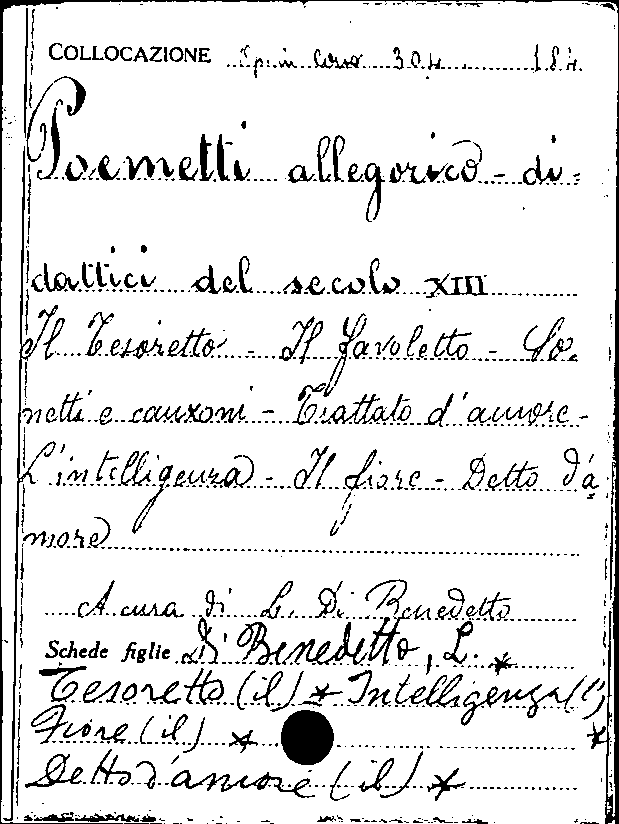 COLLOCAZIONE Sp. in corso 304. 184.
Poemetti allegorico-di-
dattici del secolo XIII
Il Tesoretto - Il favoletto - So-
netti e canzoni - Trattato d'amore -
L'intelligenza - Il fiore - Detto d'a
more
A cura di L. Di Benedetto
Schede figlie Di Benedetto, L. *
Tesoretto (il) * Intelligenza (l')
Fiore (il) * *
Detto d'amore (il) *